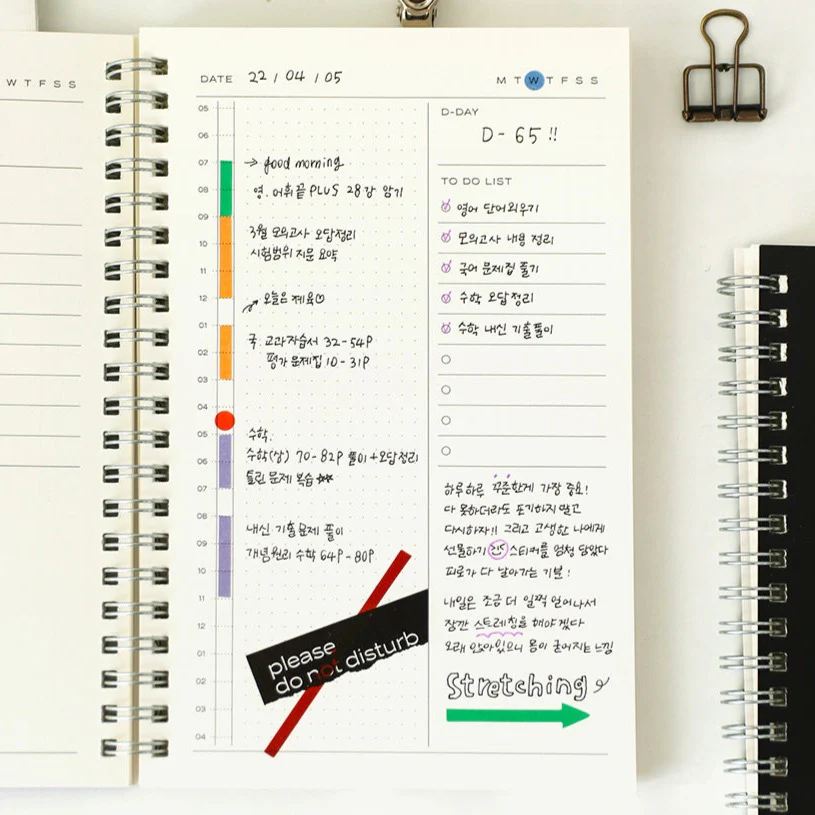 W T F S S
DATE 22 / 04 / 05
M T W T F S S
05
06
07
08
09
10
11
12
01
02
03
04
05
06
07
08
09
10
11
12
01
02
03
04
→ good morning
영. 어휘끝 PLUS 28강 암기
3월 모의고사 오답정리
시험범위 지문 요약
오늘은 제육
국. 교과자습서 32-54P
평가 문제집 10-31P
수학.
수학(상) 70-82P 풀이+오답정리
틀린 문제 복습
내신 기출문제 풀이
개념원리 수학 64P-80P
please
do not disturb
D-DAY
D-65!!
TO DO LIST
영어 단어외우기
모의고사 내용 정리
국어 문제집 풀기
수학 오답정리
수학 내신 기출풀이
하루하루 꾸준한게 가장 중요!
다 못하더라도 포기하지 말고
다시하자!! 그리고 고생한 나에게
선물하기 스티커를 엄청 담았다
피로가 다 날아가는 기분!
내일은 조금 더 일찍 일어나서
잠깐 스트레칭을 해야겠다
오래 앉아있으니 몸이 굳어지는 느낌
Stretching